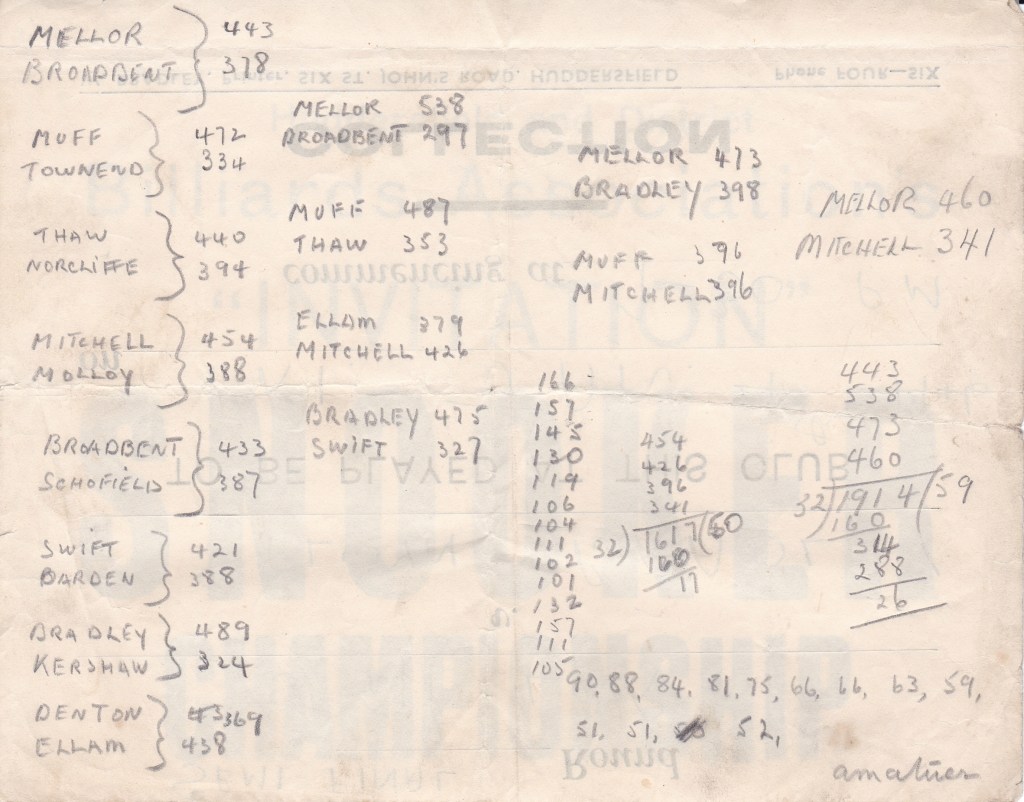 MELLOR 443
BROADBENT 378
MUFF 472
TOWNEND 334
THAW 440
NORCLIFFE 394
MITCHELL 454
MOLLOY 388
BROADBENT 433
SCHOFIELD 387
SWIFT 421
BARDEN 388
BRADLEY 489
KERSHAW 324
DENTON 369
ELLAM 438
MELLOR 538
BROADBENT 297
MUFF 487
THAW 353
ELLAM 379
MITCHELL 426
BRADLEY 475
SWIFT 327
MELLOR 473
BRADLEY 398
MUFF 396
MITCHELL 396
MELLOR 460
MITCHELL 341
166
157
145
130
119
106
104
111
102
101
132
157
111
105
454
426
396
341
32)1617(50
160
17
443
538
473
460
32)1914(59
160
314
288
26
90, 88, 84, 81, 75, 66, 66, 63, 59,
51, 51, 52,
amatuer
PRINTER, SIX ST. JOHN'S ROAD, HUDDERSFIELD Phone FOUR—SIX
COLLECTION
Billiards Association's
commencing at
"INVITATION"
SNOOKER
TO BE PLAYED AT THIS CLUB
CHAMPIONSHIP
Round
SEMI FINAL